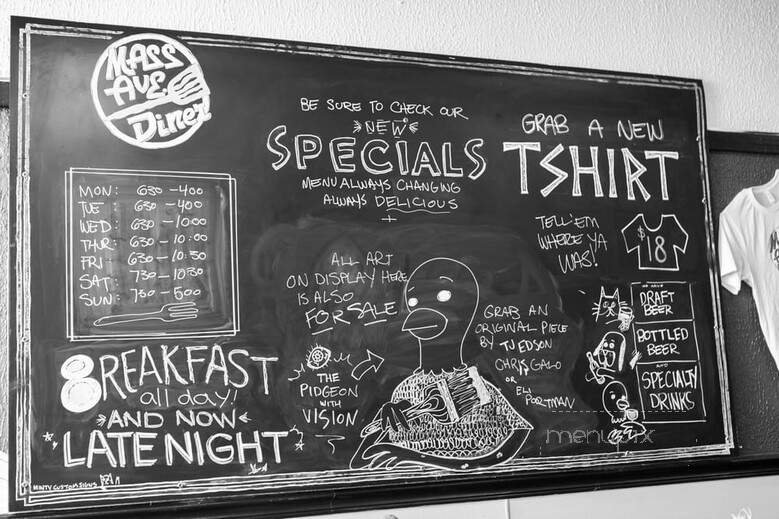 MASS
AVE.
Diner
MON: 630 - 400
TUE 630 - 400
WED: 630 - 10:00
THUR: 630 - 10:00
FRI: 630 - 10:30
SAT: 730 - 1030
SUN: 730 - 500
BREAKFAST
all day!
AND NOW
LATE NIGHT
MINTY CUSTOM SIGNS
BE SURE TO CHECK OUR
NEW
SPECIALS
MENU ALWAYS CHANGING
ALWAYS DELICIOUS
ALL ART
ON DISPLAY HERE
IS ALSO
FOR SALE
THE
PIDGEON
WITH
VISION
GRAB AN
ORIGINAL PIECE
BY TJ EDSON
CHRIS GALO
OR
ELI PORTMAN
GRAB A NEW
TSHIRT
TELL 'EM
WHERE YA
WAS!
$18
DRAFT
BEER
BOTTLED
BEER
AND
SPECIALTY
DRINKS
menupix